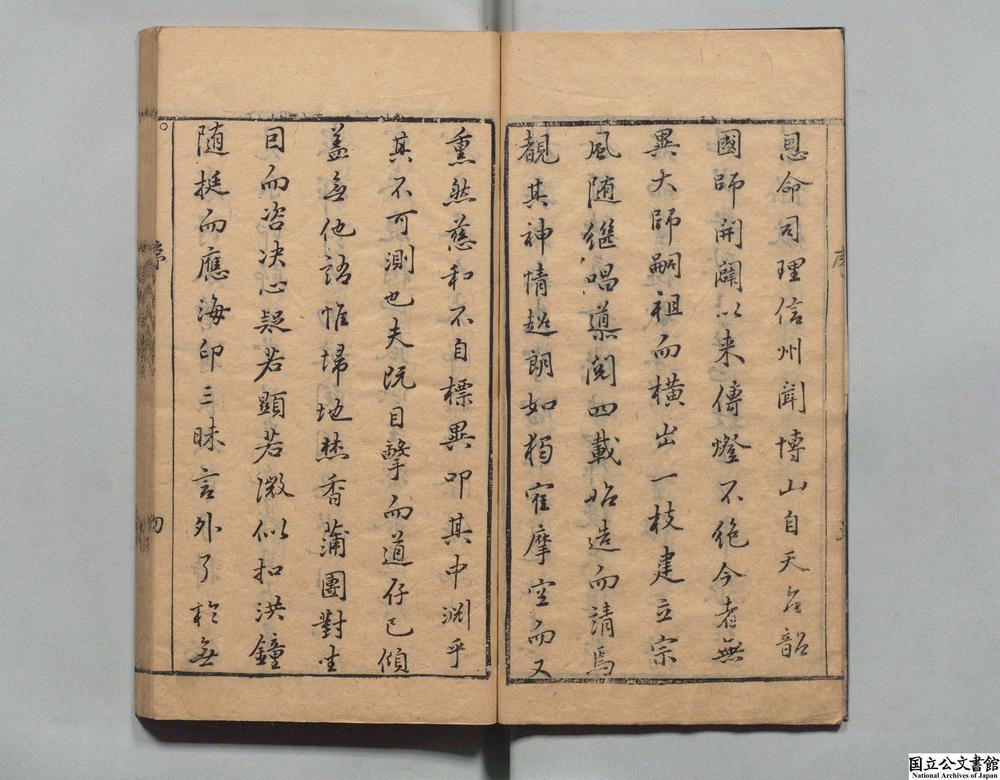 恩命司理信州聞博山自天台韶
國師開闢以来傳燈不絶今者無
異大師嗣祖而橫出一枝建立宗
風随繼唱導閱四載始造而請焉
覩其神情超朗如獨隺摩空而又
熏然慈和不自標異叩其中淵乎
其不可測也夫既目擊而道存已傾
盖無他語惟埽地焚香蒲團對坐
目而咨决心疑若顯若微似扣洪鐘
随挺而應海印三昧言外了於無
序
四
序
国立公文書館
National Archives of Japan